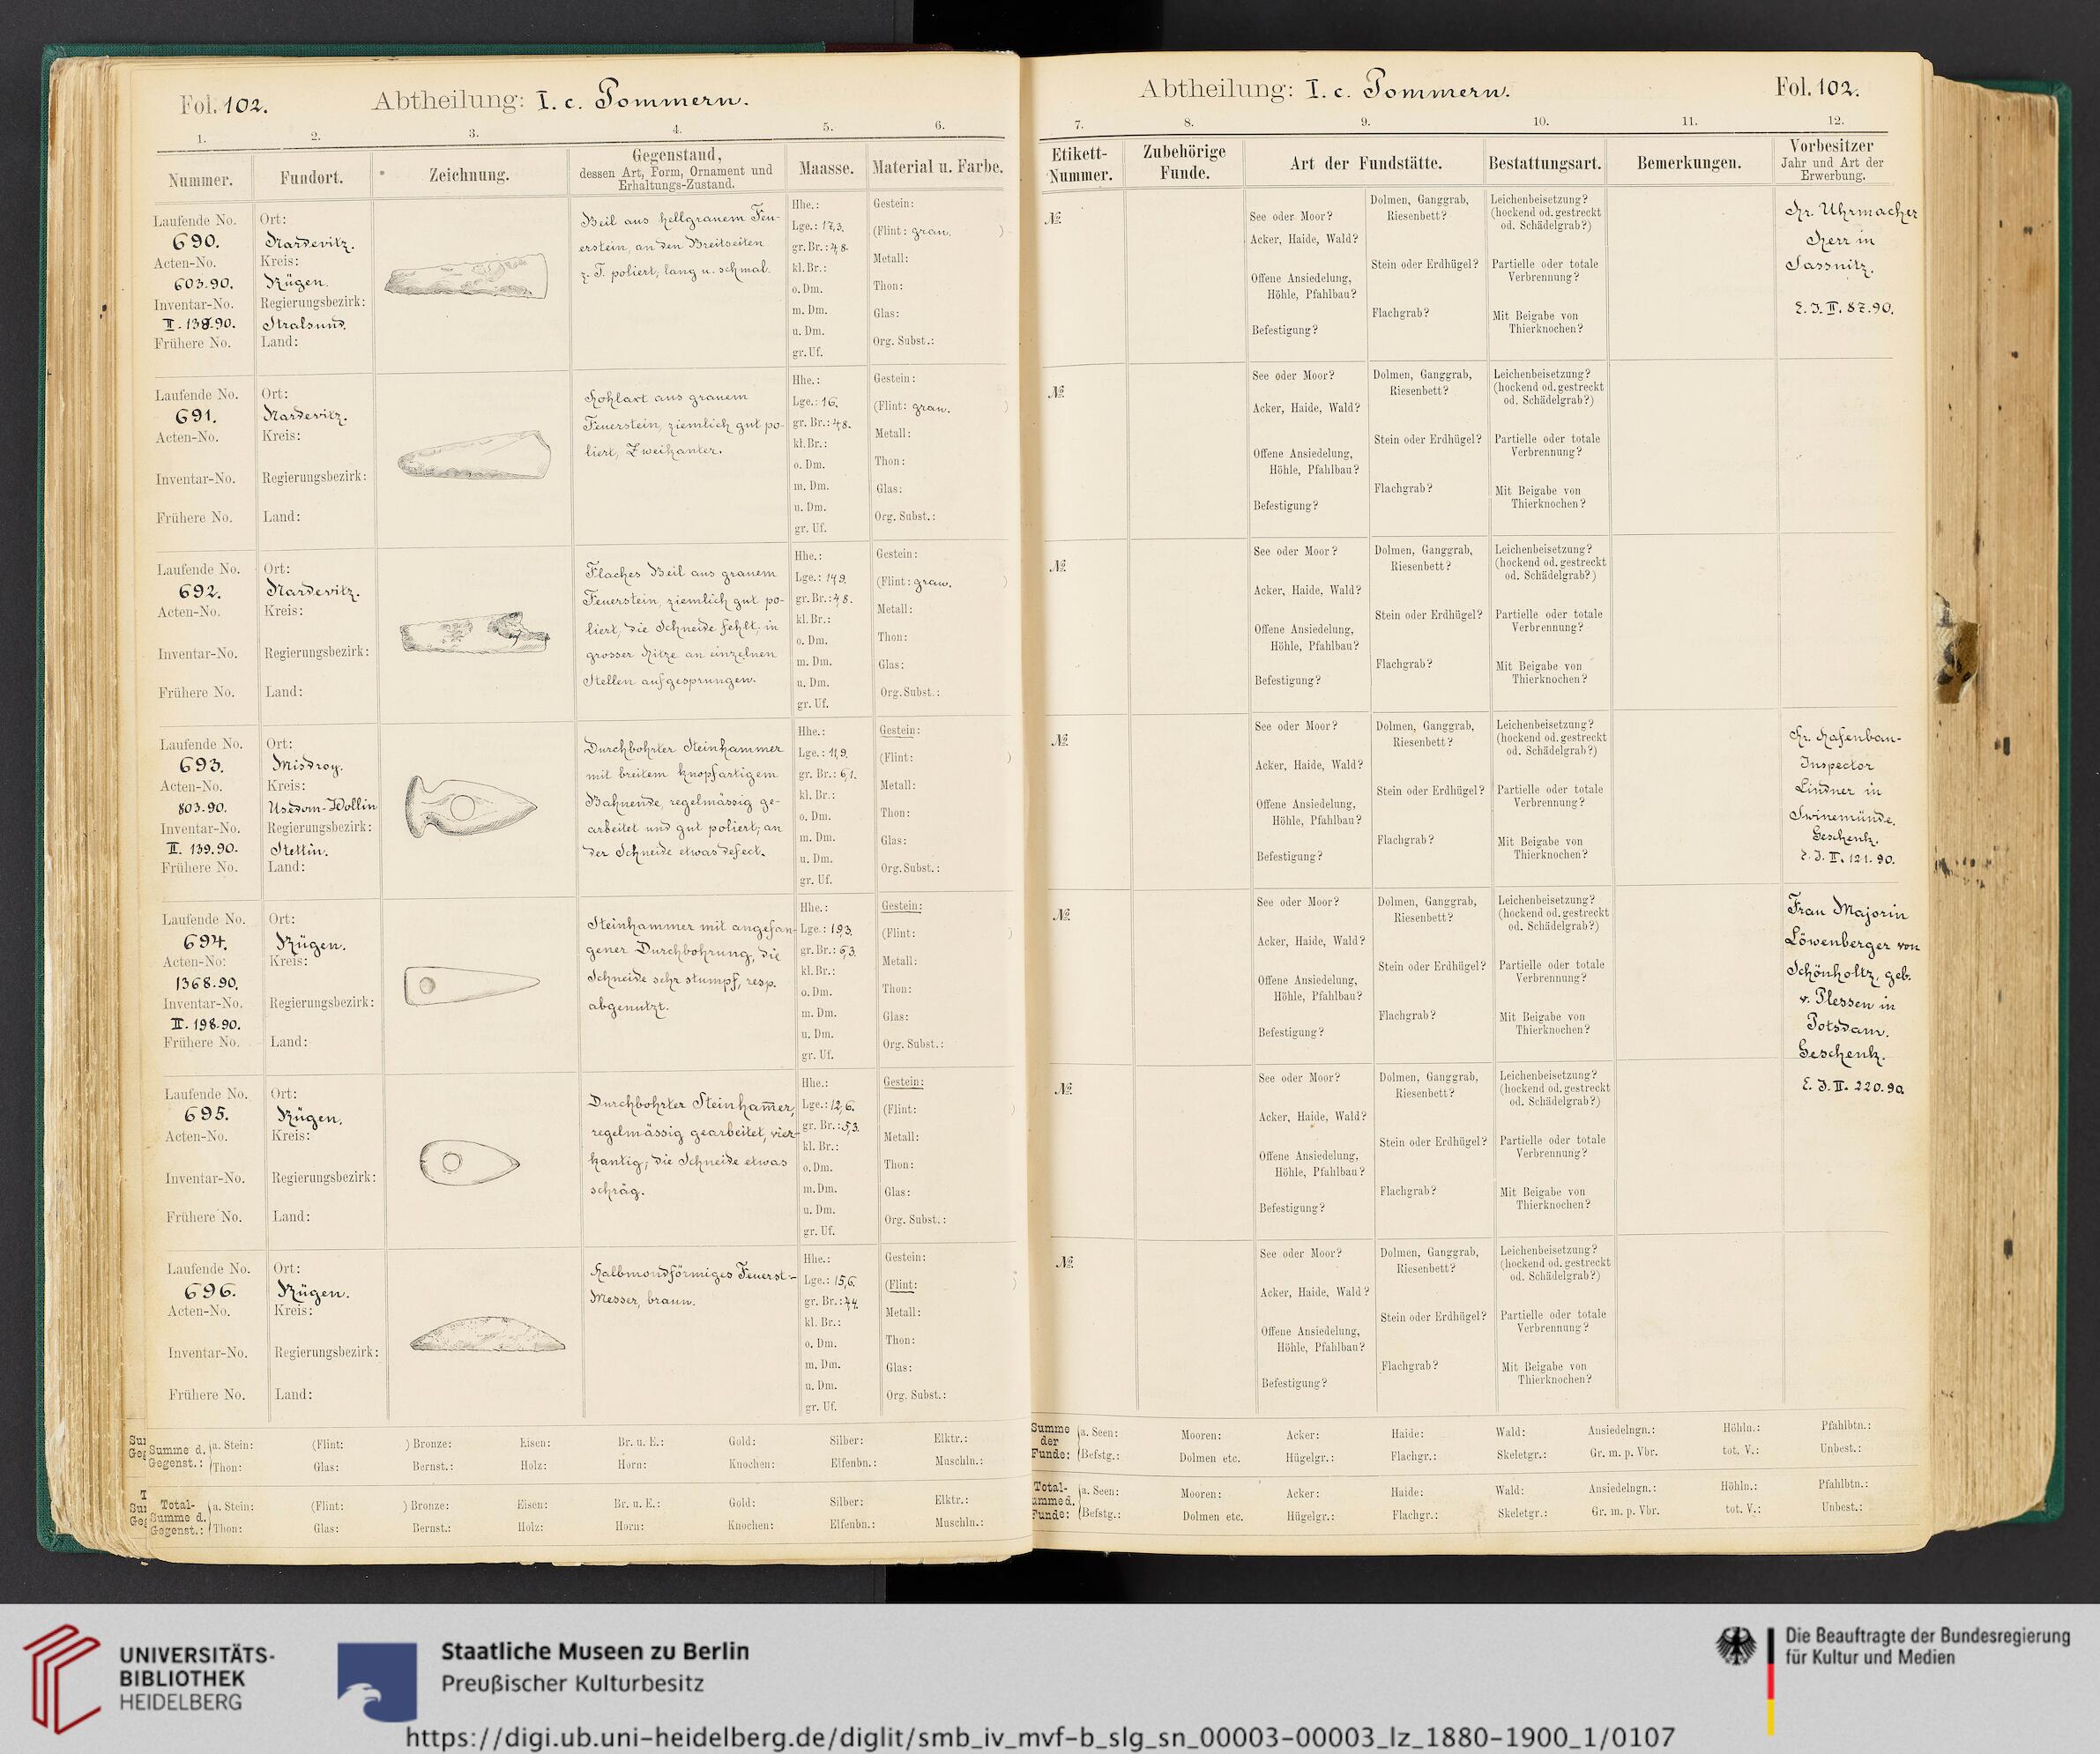 Fol. 102.
Abtheilung: I. c. Pommern.
1.
2.
3.
4.
5.
6.
Nummer.
Fundort.
Zeichnung.
Gegenstand,
dessen Art, Form, Ornament und
Erhaltungs-Zustand.
Maasse.
Material u. Farbe.
Laufende No.
690.
Acten-No.
603.90.
Inventar-No.
II. 138.90.
Frühere No.
Ort:
Nardevitz.
Kreis:
Rügen.
Regierungsbezirk:
Stralsund.
Land:
Beil aus hellgrauem Feu-
erstein, an den Breitseiten
z. T. poliert, lang u. schmal.
Hhe.:
Lge.: 17,3.
gr. Br.: 4,8.
kl. Br.:
o. Dm.
m. Dm.
u. Dm.
gr. Uf.
Gestein:
(Flint: grau. )
Metall:
Thon:
Glas:
Org. Subst.:
Laufende No.
691.
Acten-No.
Inventar-No.
Frühere No.
Ort:
Nardevitz.
Kreis:
Regierungsbezirk:
Land:
Hohlaxt aus grauem
Feuerstein, ziemlich gut po-
liert, Zweikanter.
Hhe.:
Lge.: 16.
gr. Br.: 4,8.
kl. Br.:
o. Dm.
m. Dm.
u. Dm.
gr. Uf.
Gestein:
(Flint: grau. )
Metall:
Thon:
Glas:
Org. Subst.:
Laufende No.
692.
Acten-No.
Inventar-No.
Frühere No.
Ort:
Nardevitz.
Kreis:
Regierungsbezirk:
Land:
Flaches Beil aus grauem
Feuerstein, ziemlich gut po-
liert, die Schneide fehlt, in
grosser Hitze an einzelnen
Stellen aufgesprungen.
Hhe.:
Lge.: 14,9.
gr. Br.: 4,8.
kl. Br.:
o. Dm.
m. Dm.
u. Dm.
gr. Uf.
Gestein:
(Flint: grau. )
Metall:
Thon:
Glas:
Org. Subst.:
Laufende No.
693.
Acten-No.
803.90.
Inventar-No.
II. 139.90.
Frühere No.
Ort:
Misdroy.
Kreis:
Usedom-Wollin
Regierungsbezirk:
Stettin.
Land:
Durchbohrter Steinhammer
mit breitem knopfartigem
Bahnende, regelmässig ge-
arbeitet und gut poliert, an
der Schneide etwas defect.
Hhe.:
Lge.: 11,9.
gr. Br.: 6,1.
kl. Br.:
o. Dm.
m. Dm.
u. Dm.
gr. Uf.
Gestein:
(Flint: )
Metall:
Thon:
Glas:
Org. Subst.:
Laufende No.
694.
Acten-No:
1368.90.
Inventar-No.
II. 198.90.
Frühere No.
Ort:
Rügen.
Kreis:
Regierungsbezirk:
Land:
Steinhammer mit angefan-
gener Durchbohrung, die
Schneide sehr stumpf, resp.
abgenutzt.
Hhe.:
Lge.: 19,3.
gr. Br.: 6,3.
kl. Br.:
o. Dm.
m. Dm.
u. Dm.
gr. Uf.
Gestein:
(Flint: )
Metall:
Thon:
Glas:
Org. Subst.:
Laufende No.
695.
Acten-No.
Inventar-No.
Frühere No.
Ort:
Rügen.
Kreis:
Regierungsbezirk:
Land:
Durchbohrter Steinham̄er,
regelmässig gearbeitet, vier-
kantig; die Schneide etwas
schräg.
Hhe.:
Lge.: 12,6.
gr. Br.: 5,3.
kl. Br.:
o. Dm.
m. Dm.
u. Dm.
gr. Uf.
Gestein:
(Flint: )
Metall:
Thon:
Glas:
Org. Subst.:
Laufende No.
696.
Acten-No.
Inventar-No.
Frühere No.
Ort:
Rügen.
Kreis:
Regierungsbezirk:
Land:
Halbmondförmiges Feuerst.-
Messer, braun.
Hhe.:
Lge.: 15,6.
gr. Br.: 4,4.
kl. Br.:
o. Dm.
m. Dm.
u. Dm.
gr. Uf.
Gestein:
(Flint: )
Metall:
Thon:
Glas:
Org. Subst.:
Summe d. Gegenst.: a. Stein: (Flint: ) Bronze: Eisen: Br. u. E.: Gold: Silber: Elktr.:
Thon: Glas: Bernst.: Holz: Horn: Knochen: Elfenbn.: Muschln.:
Total-Summe d. Gegenst.: a. Stein: (Flint: ) Bronze: Eisen: Br. u. E.: Gold: Silber: Elktr.:
Thon: Glas: Bernst.: Holz: Horn: Knochen: Elfenbn.: Muschln.:
Abtheilung: I. c. Pommern.
Fol. 102.
7.
8.
9.
10.
11.
12.
Etikett-
Nummer.
Zubehörige
Funde.
Art der Fundstätte.
Bestattungsart.
Bemerkungen.
Vorbesitzer
Jahr und Art der
Erwerbung.
№
See oder Moor?
Acker, Haide, Wald?
Offene Ansiedelung,
Höhle, Pfahlbau?
Befestigung?
Dolmen, Ganggrab,
Riesenbett?
Stein oder Erdhügel?
Flachgrab?
Leichenbeisetzung?
(hockend od. gestreckt
od. Schädelgrab?)
Partielle oder totale
Verbrennung?
Mit Beigabe von
Thierknochen?
Hr. Uhrmacher
Herr in
Sassnitz.
E. J. II. 87.90.
№
See oder Moor?
Acker, Haide, Wald?
Offene Ansiedelung,
Höhle, Pfahlbau?
Befestigung?
Dolmen, Ganggrab,
Riesenbett?
Stein oder Erdhügel?
Flachgrab?
Leichenbeisetzung?
(hockend od. gestreckt
od. Schädelgrab?)
Partielle oder totale
Verbrennung?
Mit Beigabe von
Thierknochen?
№
See oder Moor?
Acker, Haide, Wald?
Offene Ansiedelung,
Höhle, Pfahlbau?
Befestigung?
Dolmen, Ganggrab,
Riesenbett?
Stein oder Erdhügel?
Flachgrab?
Leichenbeisetzung?
(hockend od. gestreckt
od. Schädelgrab?)
Partielle oder totale
Verbrennung?
Mit Beigabe von
Thierknochen?
№
See oder Moor?
Acker, Haide, Wald?
Offene Ansiedelung,
Höhle, Pfahlbau?
Befestigung?
Dolmen, Ganggrab,
Riesenbett?
Stein oder Erdhügel?
Flachgrab?
Leichenbeisetzung?
(hockend od. gestreckt
od. Schädelgrab?)
Partielle oder totale
Verbrennung?
Mit Beigabe von
Thierknochen?
Hr. Hafenbau-
Inspector
Lindner in
Swinemünde.
Geschenk.
E. J. II. 121.90.
№
See oder Moor?
Acker, Haide, Wald?
Offene Ansiedelung,
Höhle, Pfahlbau?
Befestigung?
Dolmen, Ganggrab,
Riesenbett?
Stein oder Erdhügel?
Flachgrab?
Leichenbeisetzung?
(hockend od. gestreckt
od. Schädelgrab?)
Partielle oder totale
Verbrennung?
Mit Beigabe von
Thierknochen?
Frau Majorin
Löwenberger von
Schönholtz, geb.
v. Plessen in
Potsdam.
Geschenk.
E. J. II. 220.90.
№
See oder Moor?
Acker, Haide, Wald?
Offene Ansiedelung,
Höhle, Pfahlbau?
Befestigung?
Dolmen, Ganggrab,
Riesenbett?
Stein oder Erdhügel?
Flachgrab?
Leichenbeisetzung?
(hockend od. gestreckt
od. Schädelgrab?)
Partielle oder totale
Verbrennung?
Mit Beigabe von
Thierknochen?
№
See oder Moor?
Acker, Haide, Wald?
Offene Ansiedelung,
Höhle, Pfahlbau?
Befestigung?
Dolmen, Ganggrab,
Riesenbett?
Stein oder Erdhügel?
Flachgrab?
Leichenbeisetzung?
(hockend od. gestreckt
od. Schädelgrab?)
Partielle oder totale
Verbrennung?
Mit Beigabe von
Thierknochen?
Summe der Funde: a. Seen: Mooren: Acker: Haide: Wald: Ansiedelngn.: Höhln.: Pfahlbtn.:
Befstg.: Dolmen etc. Hügelgr.: Flachgr.: Skeletgr.: Gr. m. p. Vbr. tot. V.: Unbest.:
Total-Summe d. Funde: a. Seen: Mooren: Acker: Haide: Wald: Ansiedelngn.: Höhln.: Pfahlbtn.:
Befstg.: Dolmen etc. Hügelgr.: Flachgr.: Skeletgr.: Gr. m. p. Vbr. tot. V.: Unbest.:
UNIVERSITÄTS-
BIBLIOTHEK
HEIDELBERG
Staatliche Museen zu Berlin
Preußischer Kulturbesitz
Die Beauftragte der Bundesregierung
für Kultur und Medien
https://digi.ub.uni-heidelberg.de/diglit/smb_iv_mvf-b_slg_sn_00003-00003_lz_1880-1900_1/0107